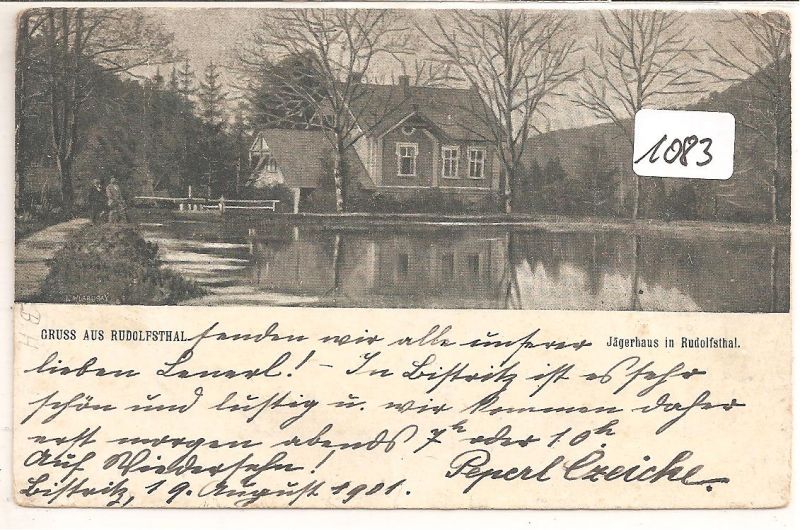 1083
GRUSS AUS RUDOLFSTHAL senden wir alle unserer Jägerhaus in Rudolfsthal.
lieben Lenerl! – In Bistritz ist es sehr
schön und lustig u. wir kommen daher
erst morgen abends 7h oder 10h
Auf Wiedersehn! Peperl Czeicke
Bistritz, 19. August 1901.
BH